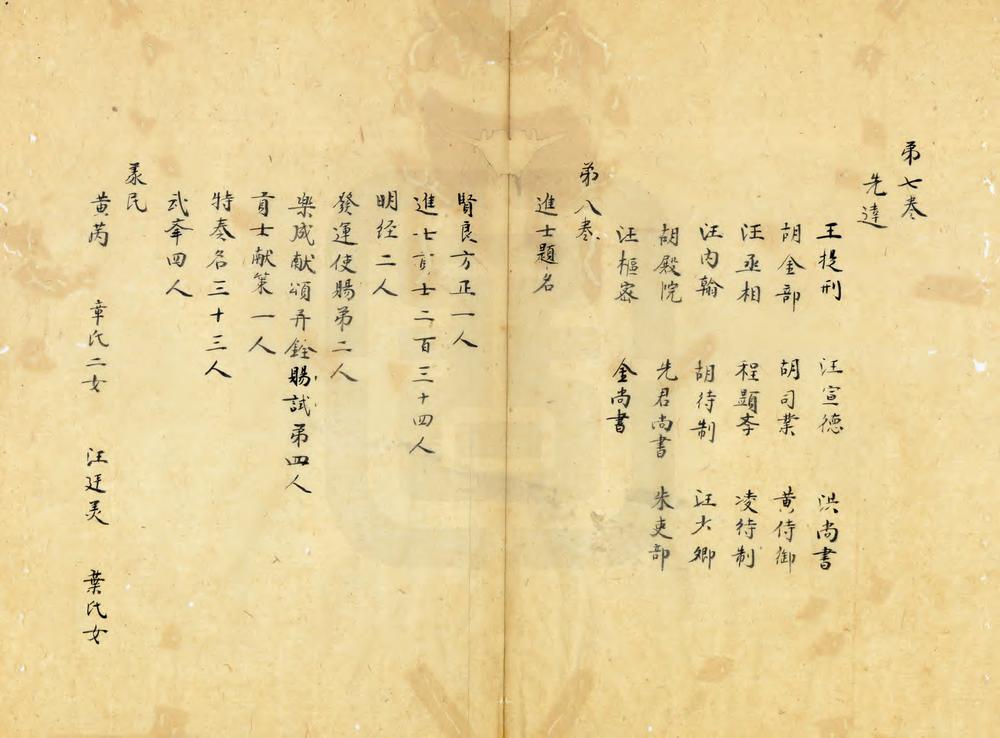 弟七卷
先達
王提刑 汪宣德 洪尚書
胡金部 胡司業 黃侍御
汪丞相 程顯學 凌待制
汪内翰 胡待制 汪大卿
胡殿院 先君尚書 朱吏部
汪樞宻 金尚書
弟八卷
進士題名
賢良方正一人
進士貢士二百三十四人
明經二人
發運使賜弟二人
樂成献頌并銓賜試弟四人
貢士献策一人
特奏名三十三人
武舉四人
義民
黃芮 章氏二女 汪廷美 葉氏女